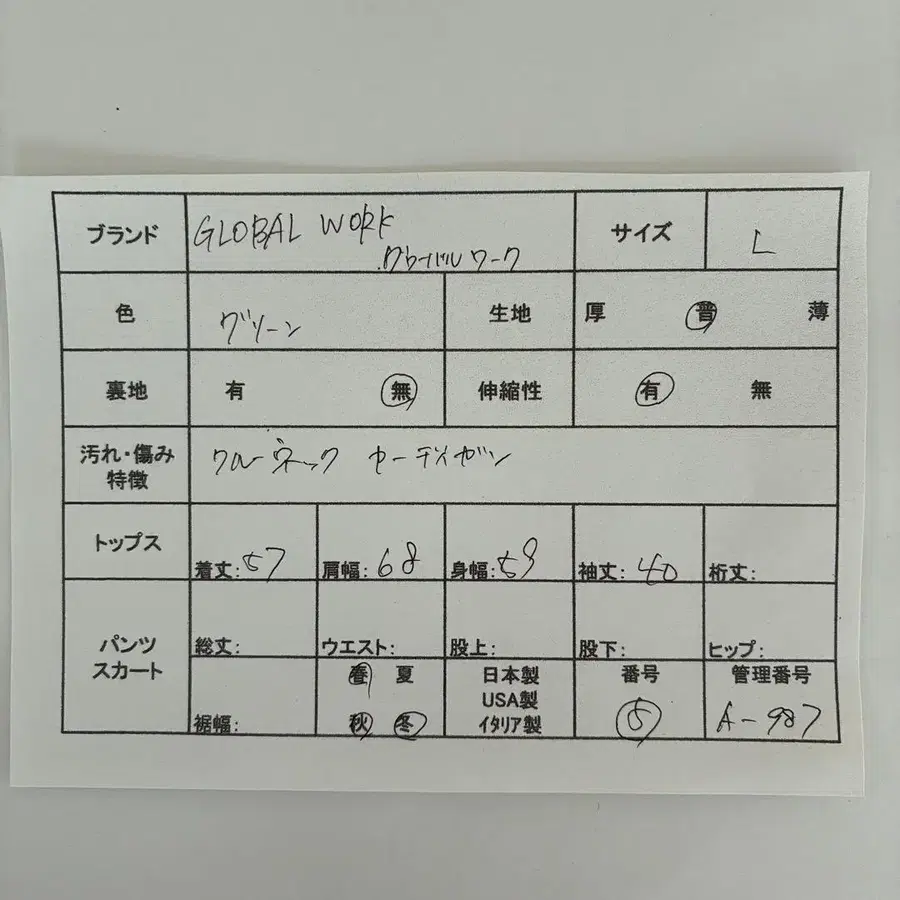 ブランド GLOBAL WORK サイズ L
グローバル ワーク
色 グリーン 生地 厚 普 薄
裏地 有 無 伸縮性 有 無
汚れ・傷み クルーネック カーディガン
特徴
トップス 着丈:57 肩幅:68 身幅:59 袖丈:40 裄丈:
パンツ 総丈: ウエスト: 股上: 股下: ヒップ:
スカート 春 夏 日本製 番号 管理番号
USA製
裾幅: 秋 冬 イタリア製 5 A-987